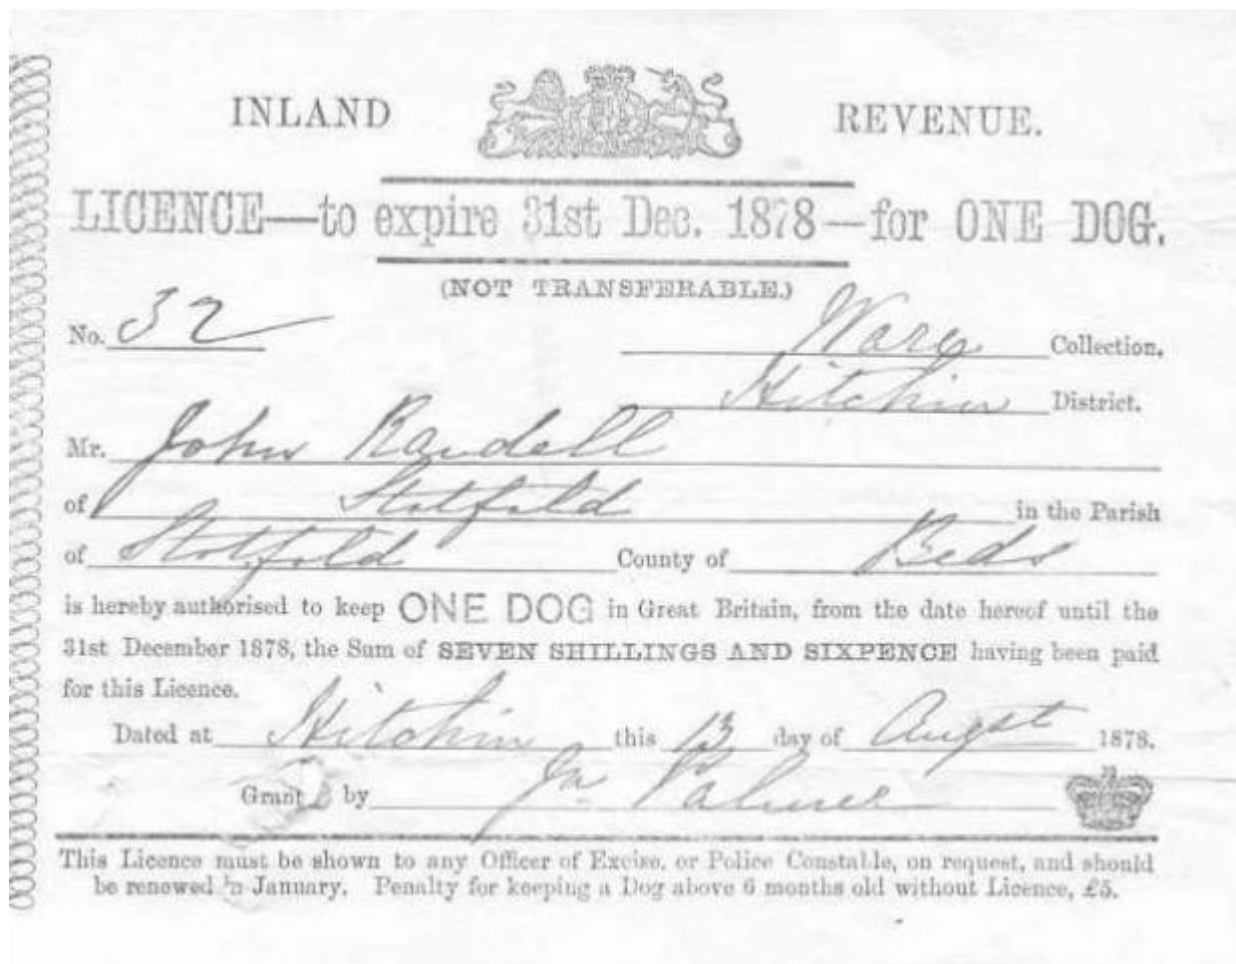 INLAND REVENUE.
LICENCE—to expire 31st Dec. 1878—for ONE DOG.
(NOT TRANSFERABLE.)
No. 32 Ware Collection.
Hitchin District.
Mr. John Randell
of Stotfold in the Parish
of Stotfold County of Beds
is hereby authorised to keep ONE DOG in Great Britain, from the date hereof until the
31st December 1878, the Sum of SEVEN SHILLINGS AND SIXPENCE having been paid
for this Licence.
Dated at Hitchin this 13 day of Augst 1878.
Granted by Jn Palmer
This Licence must be shown to any Officer of Excise, or Police Constable, on request, and should
be renewed in January. Penalty for keeping a Dog above 6 months old without Licence, £5.